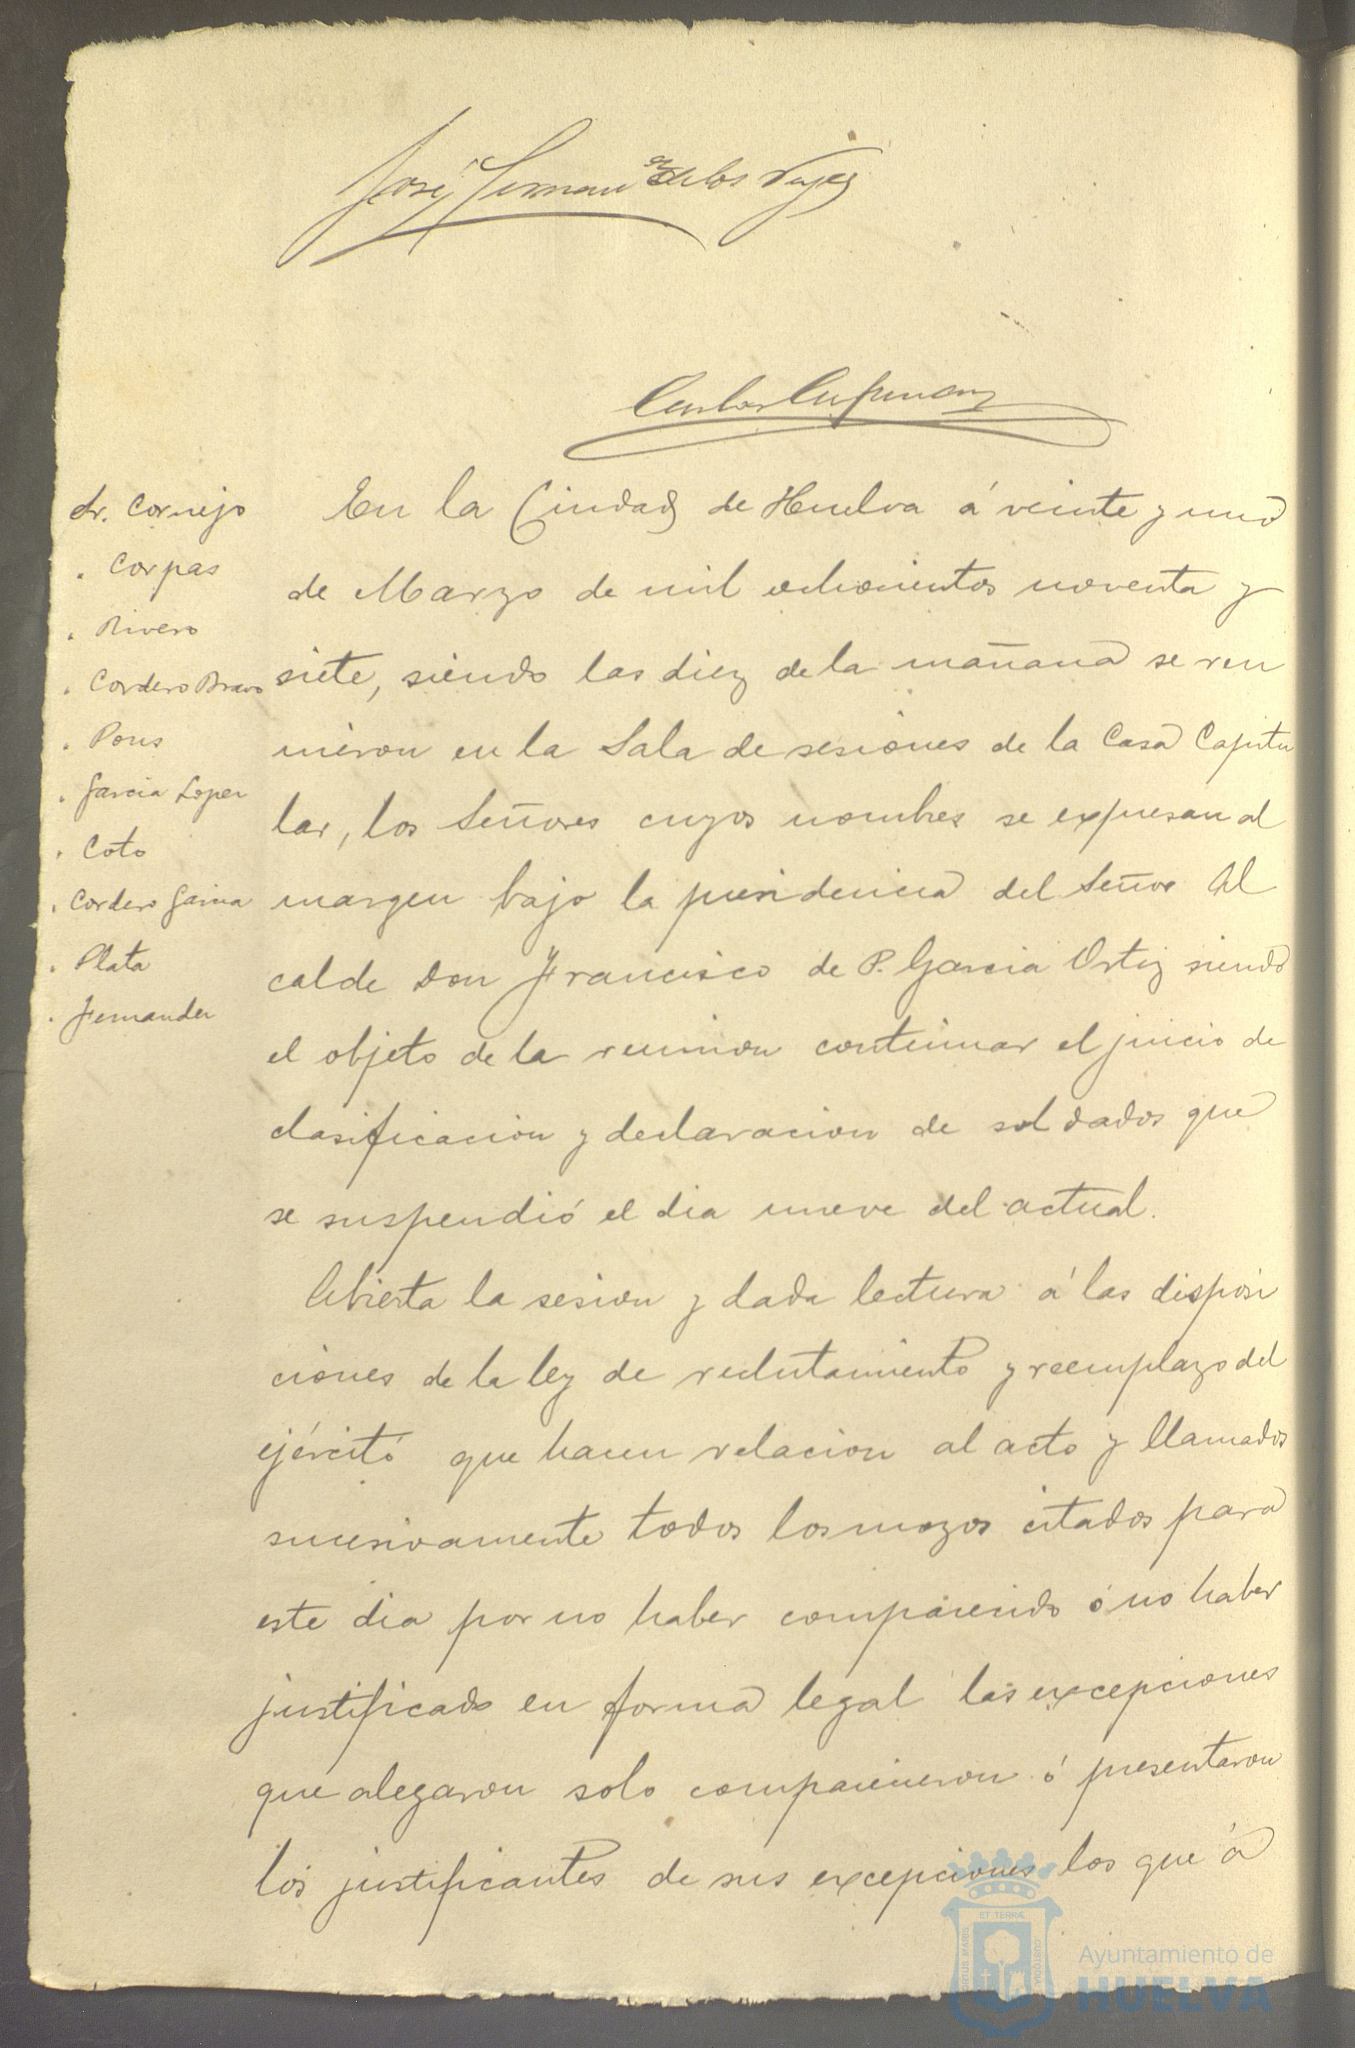 José Fernandez de los Reyes
Carlos
Sr. Cornejo
. Corpas
. Rivero
. Cordero Bravo
. Pons
. Garcia Lopez
. Coto
. Cordero Garcia
. Plata
. Fernandez
En la Ciudad de Huelva á veinte y uno
de Marzo de mil ochocientos noventa y
siete, siendo las diez de la mañana se reu
nieron en la Sala de sesiones de la Casa Capitu
lar, los Señores cuyos nombres se expresan al
margen bajo la presidencia del Señor Al
calde Don Francisco de P. Garcia Ortiz siendo
el objeto de la reunion continuar el juicio de
clasificacion y declaracion de soldados que
se suspendió el dia nueve del actual.
Abierta la sesion y dada lectura á las disposi
ciones de la ley de reclutamiento y reemplazo del
ejército que hacen relacion al acto y llamados
sucesivamente todos los mozos citados para
este dia por no haber comparecido ó no haber
justificado en forma legal las excepciones
que alegaron solo comparecieron ó presentaron
los justificantes de sus excepciones los que á
Ayuntamiento de
HUELVA